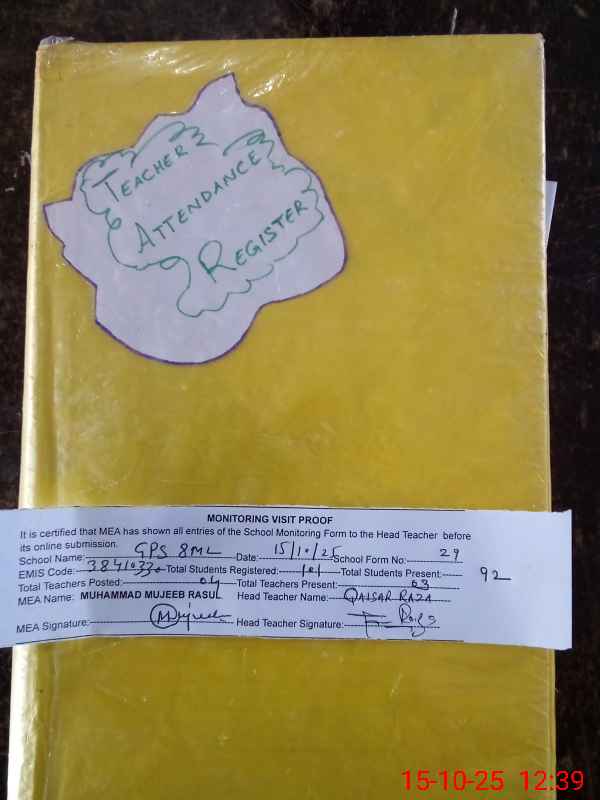 TEACHER
ATTENDANCE
REGISTER
MONITORING VISIT PROOF
It is certified that MEA has shown all entries of the School Monitoring Form to the Head Teacher before
its online submission.
School Name: GPS 8ML Date: 15/10/25 School Form No: 29
EMIS Code: Total Students Registered: 101 Total Students Present: 92
Total Teachers Posted: 04 Total Teachers Present: 03
MEA Name: MUHAMMAD MUJEEB RASUL Head Teacher Name: QAISAR RAZA
MEA Signature: Mujeeb Head Teacher Signature:
15-10-25 12:39